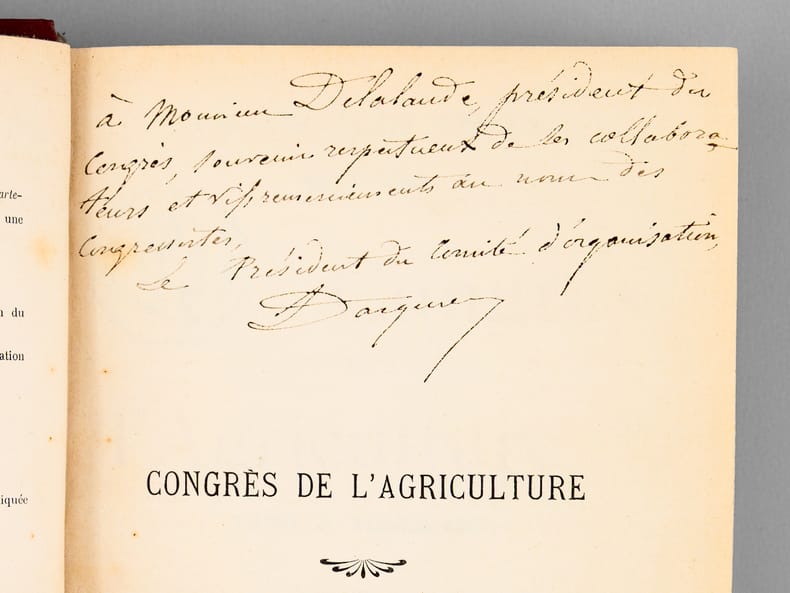 à Monsieur Delalande, président du
Congrès, souvenir respectueux de ses collabora-
teurs et vifs remerciements au nom des
Congressistes,
Le Président du Comité d'organisation,
arte-
une
n du
ation
iquée
CONGRÈS DE L'AGRICULTURE